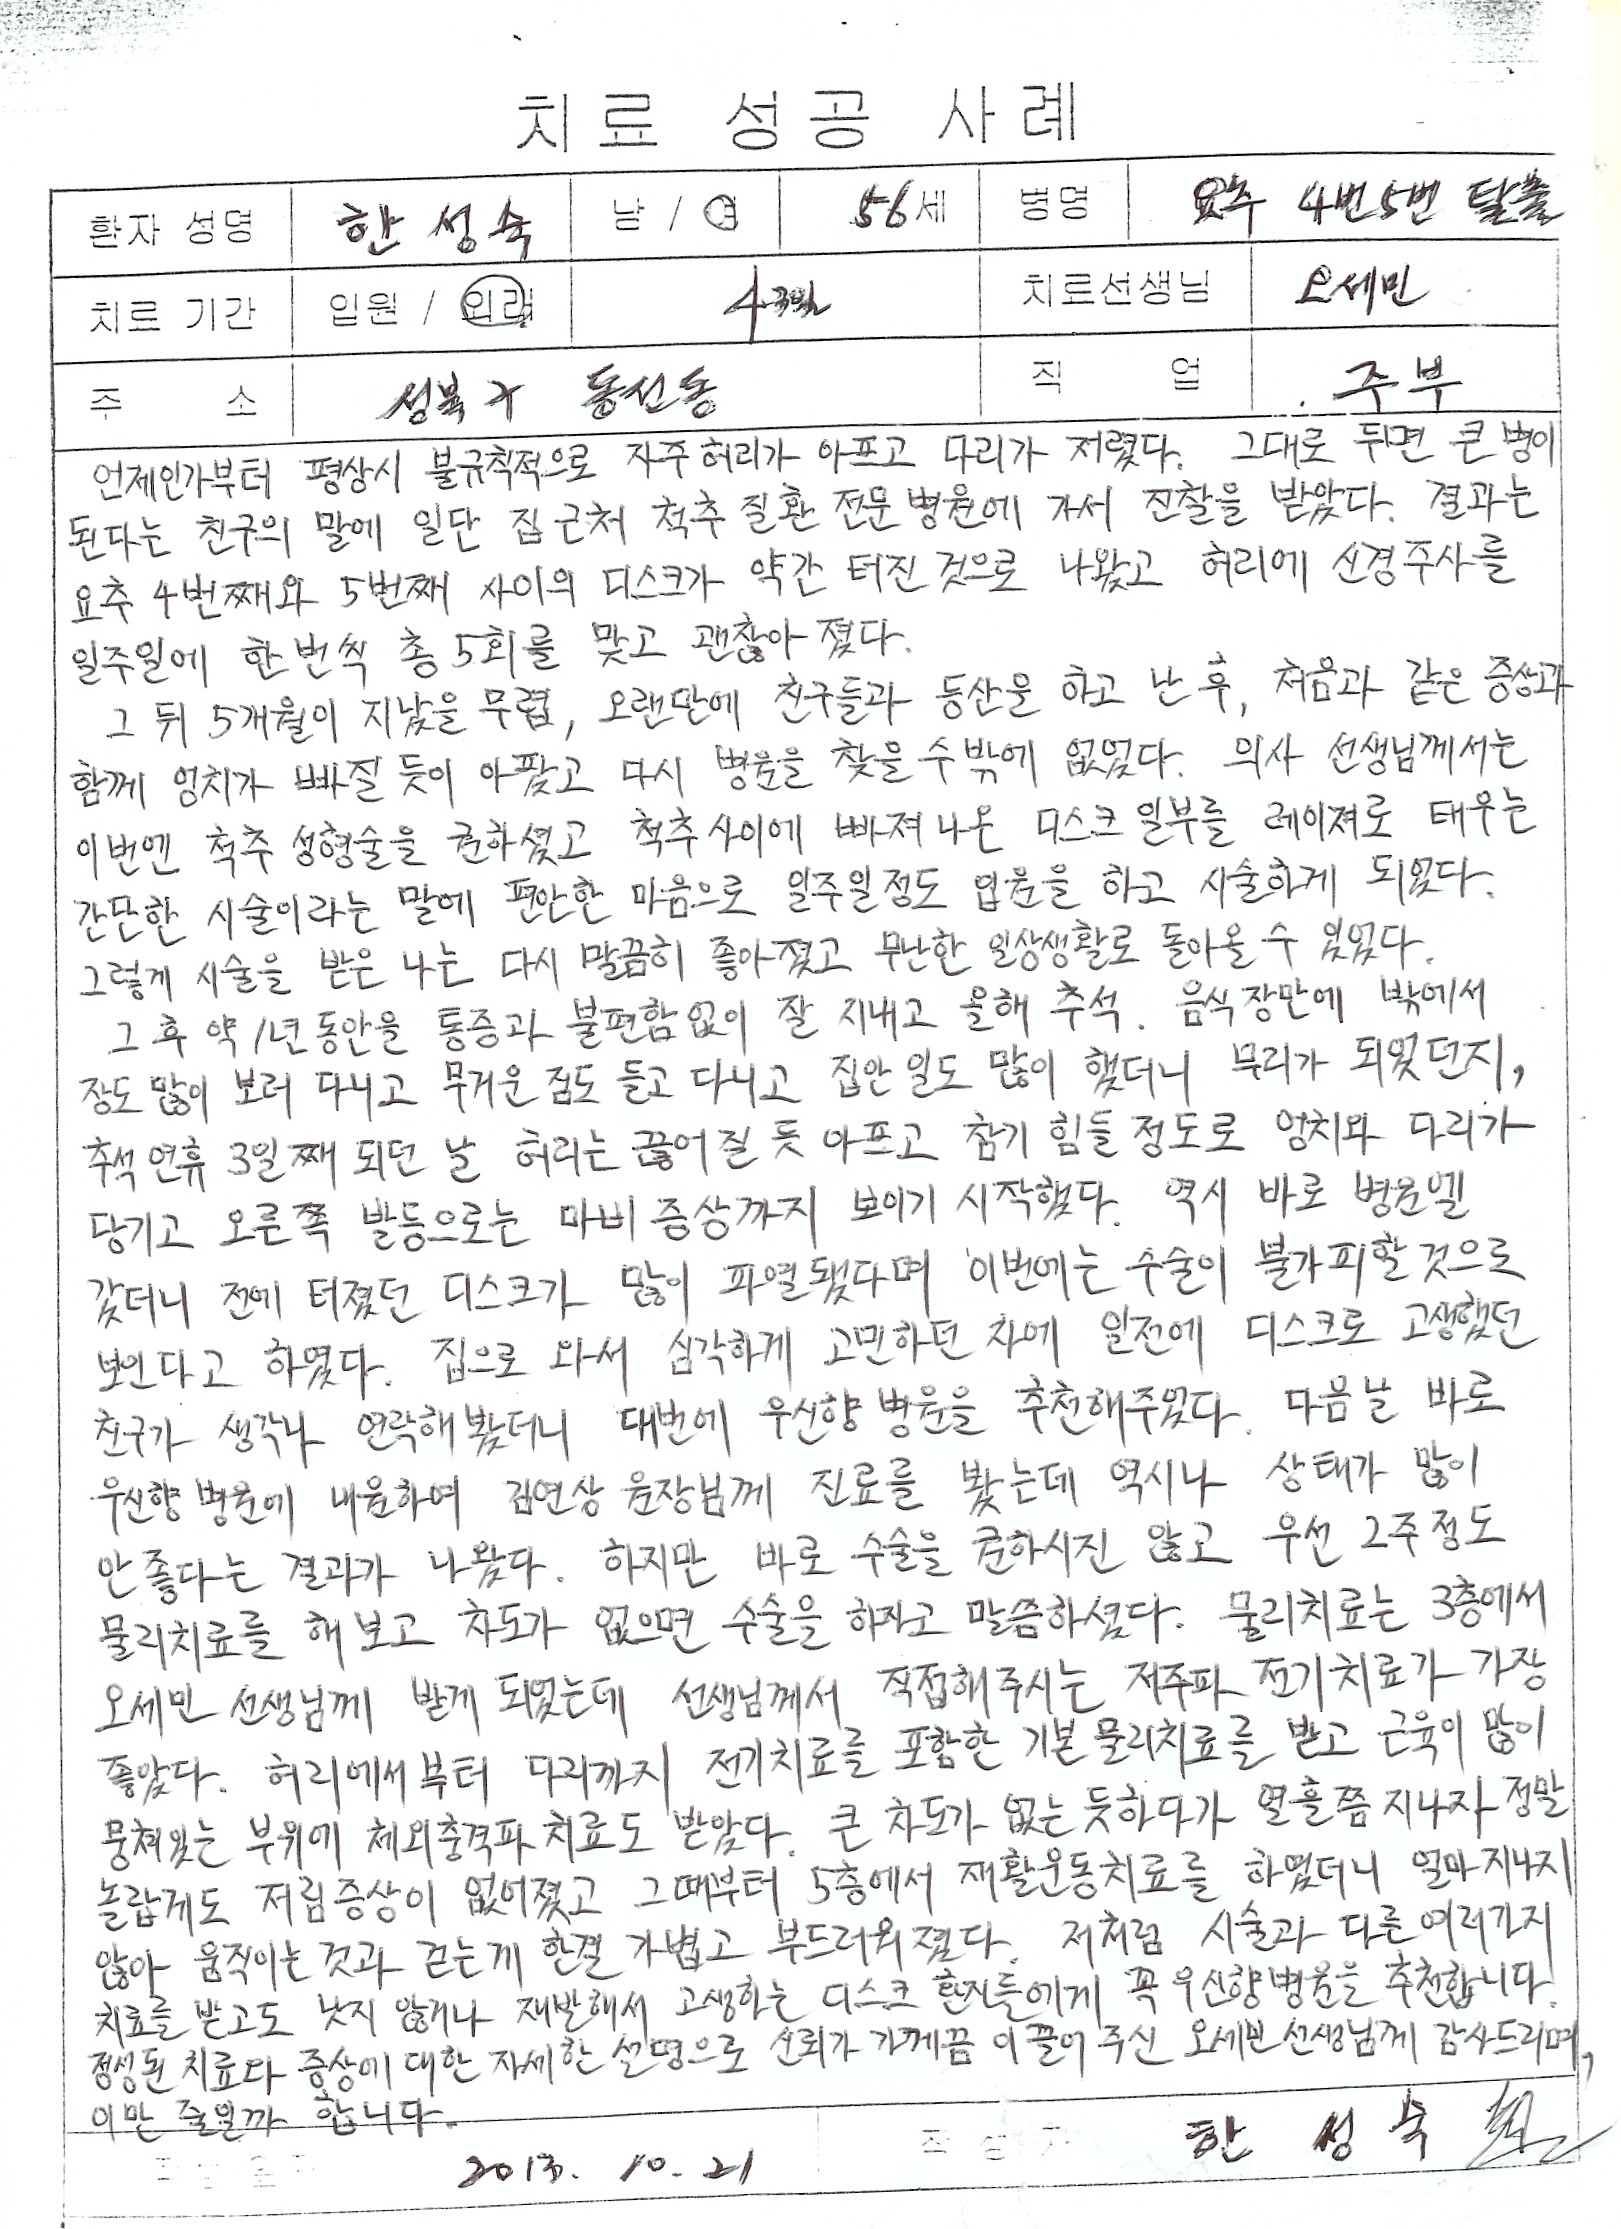 치료 성공 사례
환자 성명 한성숙 남 / 여 56세 병명 요추 4번5번 탈출
치료 기간 입원 / 외래 4주일 치료선생님 오세민
주 소 성북구 동선동 직 업 주부
언제인가부터 평상시 불규칙적으로 자주 허리가 아프고 다리가 저렸다. 그대로 두면 큰 병이
된다는 친구의 말에 일단 집 근처 척추 질환 전문병원에 가서 진찰을 받았다. 결과는
요추 4번째와 5번째 사이의 디스크가 약간 터진 것으로 나왔고 허리에 신경주사를
일주일에 한번씩 총 5회를 맞고 괜찮아 졌다.
그 뒤 5개월이 지났을 무렵, 오랜만에 친구들과 등산을 하고 난 후, 처음과 같은 증상과
함께 엉치가 빠질 듯이 아팠고 다시 병원을 찾을 수 밖에 없었다. 의사 선생님께서는
이번엔 척추 성형술을 권하셨고 척추사이에 빠져나온 디스크 일부를 레이져로 태우는
간단한 시술이라는 말에 편안한 마음으로 일주일정도 입원을 하고 시술하게 되었다.
그렇게 시술을 받은 나는 다시 말끔히 좋아졌고 무난한 일상생활로 돌아올 수 있었다.
그 후 약 1년 동안을 통증과 불편함없이 잘 지내고 올해 추석. 음식장만에 밖에서
장도 많이 보러 다니고 무거운 짐도 들고 다니고 집안 일도 많이 했더니 무리가 되었던지,
추석 연휴 3일째 되던 날 허리는 끊어질 듯 아프고 참기 힘들 정도로 엉치와 다리가
당기고 오른쪽 발등으로는 마비 증상까지 보이기 시작했다. 역시 바로 병원엘
갔더니 전에 터졌던 디스크가 많이 파열됐다며 이번에는 수술이 불가피할 것으로
보인다고 하였다. 집으로 와서 심각하게 고민하던 차에 일전에 디스크로 고생했던
친구가 생각나 연락해봤더니 대번에 우신향병원을 추천해주었다. 다음날 바로
우신향병원에 내원하여 김연상 원장님께 진료를 봤는데 역시나 상태가 많이
안 좋다는 결과가 나왔다. 하지만 바로 수술을 권하시진 않고 우선 2주정도
물리치료를 해 보고 차도가 없으면 수술을 하자고 말씀하셨다. 물리치료는 3층에서
오세민 선생님께 받게 되었는데 선생님께서 직접해주시는 저주파 전기치료가 가장
좋았다. 허리에서부터 다리까지 전기치료를 포함한 기본 물리치료를 받고 근육이 많이
뭉쳐있는 부위에 체외충격파 치료도 받았다. 큰 차도가 없는 듯하다가 열흘쯤 지나자 정말
놀랍게도 저림증상이 없어졌고 그때부터 5층에서 재활운동치료를 하였더니 얼마지나지
않아 움직이는 것과 걷는게 한결 가볍고 부드러워졌다. 저처럼 시술과 다른 여러가지
치료를 받고도 낫지 않거나 재발해서 고생하는 디스크 환자들에게 꼭 우신향병원을 추천합니다.
정성된 치료다 증상에 대한 자세한 설명으로 신뢰가 가게끔 이끌어 주신 오세민선생님께 감사드리며,
이만 줄일까 합니다.
2013. 10. 21 작성자 한성숙